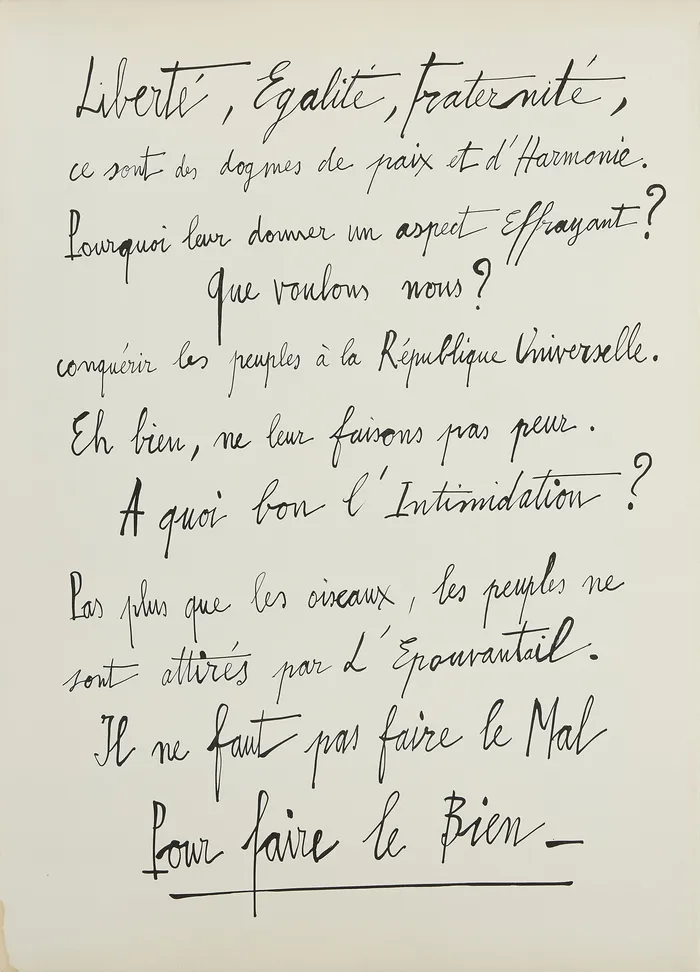 Liberté, Egalité, fraternité,
ce sont des dogmes de paix et d'Harmonie.
Pourquoi leur donner un aspect Effrayant?
Que voulons nous?
conquérir les peuples à la République Universelle.
Eh bien, ne leur faisons pas peur.
A quoi bon l'Intimidation?
Pas plus que les oiseaux, les peuples ne
sont attirés par L'Epouvantail.
Il ne faut pas faire le Mal
Pour faire le Bien_